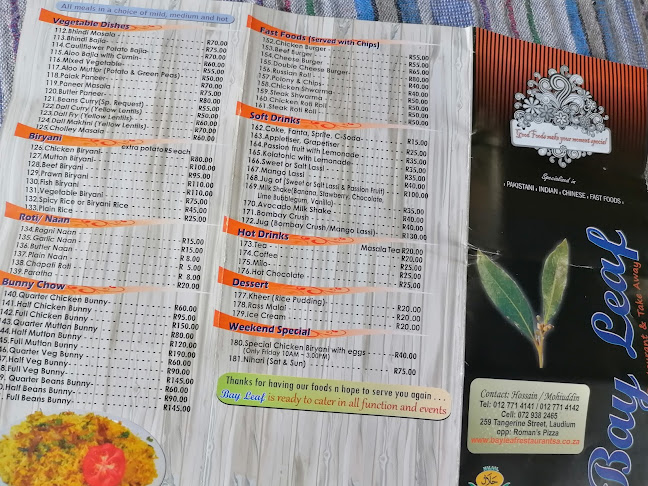 All meals in a choice of mild, medium and hot
Vegetable Dishes
112.Bhindi Masala - R70.00
113.Bhindi Bajia-
114.Cauliflower Potato Bajia-
115.Aloo Bajia with Cumin-
116.Mixed Vegetable-
117.Aloo Mutter (Potato & Green Peas)
118.Palak Paneer-
119.Paneer Masala
120.Butter Paneer-
121.Beans Curry(Sp. Request)
122.Dall Curry (Yellow Lentils)
123.Dall Fry (Yellow Lentils)
124.Dall Makhni (Yellow Lentils)
125.Cholley Masala
Biryani extra potato R5 each
126.Chicken Biryani- R80.00
127.Mutton Biryani- R100.00
128.Beef Biryani R95.00
129.Prawn Biryani R110.00
130.Fish Biryani R110.00
131.Vegetable Biryani R75.00
132.Spicy Rice or Biryani Rice R45.00
133.Plain Rice R25.00
Roti/ Naan
134.Rogni Naan R15.00
135.Garlic Naan R15.00
136.Butter Naan R15.00
137.Plain Naan R 8.00
138.Chapati Roti R 5.00
139.Paratha - R20.00
Bunny Chow
140.Quarter Chicken Bunny- R60.00
141.Half Chicken Bunny R95.00
142.Full Chicken Bunny R150.00
143.Quarter Mutton Bunny R80.00
144.Half Mutton Bunny R120.00
Full Mutton Bunny R190.00
Quarter Veg Bunny R60.00
Half Veg Bunny R90.00
Full Veg Bunny R145.00
Quarter Beans Bunny R60.00
Half Beans Bunny R90.00
Full Beans Bunny- R145.00
Fast Foods (Served with Chips)
152.Chicken Burger R55.00
153.Beef Burger R55.00
154.Cheese Burger R60.00
155.Double Cheese Burger
156.Russian Roll -
157.Polony & Chips-
158.Chicken Shwarma
159.Mutton Shwarma
160.Chicken Roti Roll
161.Steak Roti Roll
Soft Drinks
162.Coke, Fanta, Sprite, C-Soda-
163.Appletiser, Grapetiser
164.Passion Fruit with Lemonade
165.Kolatonic with Lemonade
166.Sweet or Salt Lassi
167.Mango Lassi
168.Jug of (Sweet or Salt Lassi & Passion Fruit) - R100.00
169.Milk Shake(Banana, Strawberry, Chocolate,
Lime Bubblegum, Vanilla)- R35.00
170.Avocado Milk Shake - R40.00
171.Bombay Crush - R40.00
172.Jug (Bombay Crush/Mango Lassi) R130.00
Hot Drinks
173.Tea - Masala Tea R20.00
174.Coffee - R20.00
175.Milo- R25.00
176.Hot Chocolate - R25.00
Dessert
177.Kheer (Rice Pudding)- R20.00
178.Ross Malai R20.00
179.Ice Cream R20.00
Weekend Special
180.Special Chicken Biryani with eggs - R40.00
(Only Friday 10AM - 3:00PM)
181.Nihari (Sat & Sun) R75.00
Thanks for having our foods n hope to serve you again . . .
Bay Leaf is ready to cater in all function and events
Good Foods make your moment special
Specialized in
PAKISTANI INDIAN CHINESE FAST FOODS
Bay Leaf
& Take Away
Contact: Hossain / Mohiuddin
Tel: 012 771 4141 / 012 771 4142
Cell: 072 938 2465
259 Tangerine Street, Laudium
opp: Roman's Pizza
www.bayleafrestaurantsa.co.za